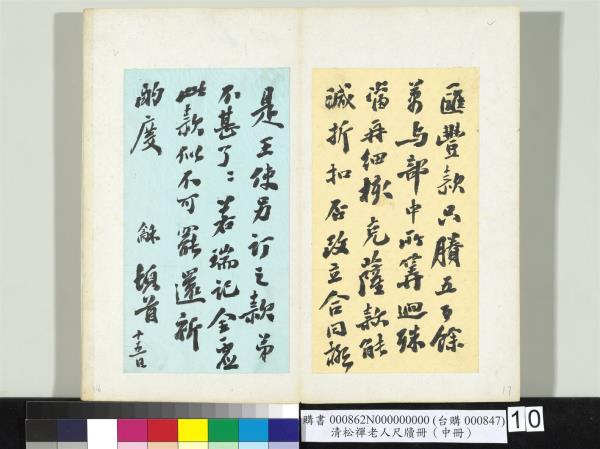 匯豐款只賸五百餘
萬與部中所算迥殊
當再細檢克薩款能
減折扣否改立合同
是王使另訂之款弟
不甚了了若端記全
此款似不可罷還祈
酌度 龢頓首 十五日
16
17
購書 000862N000000000 (台購 000847)
清松禪老人尺牘冊（中冊）
10